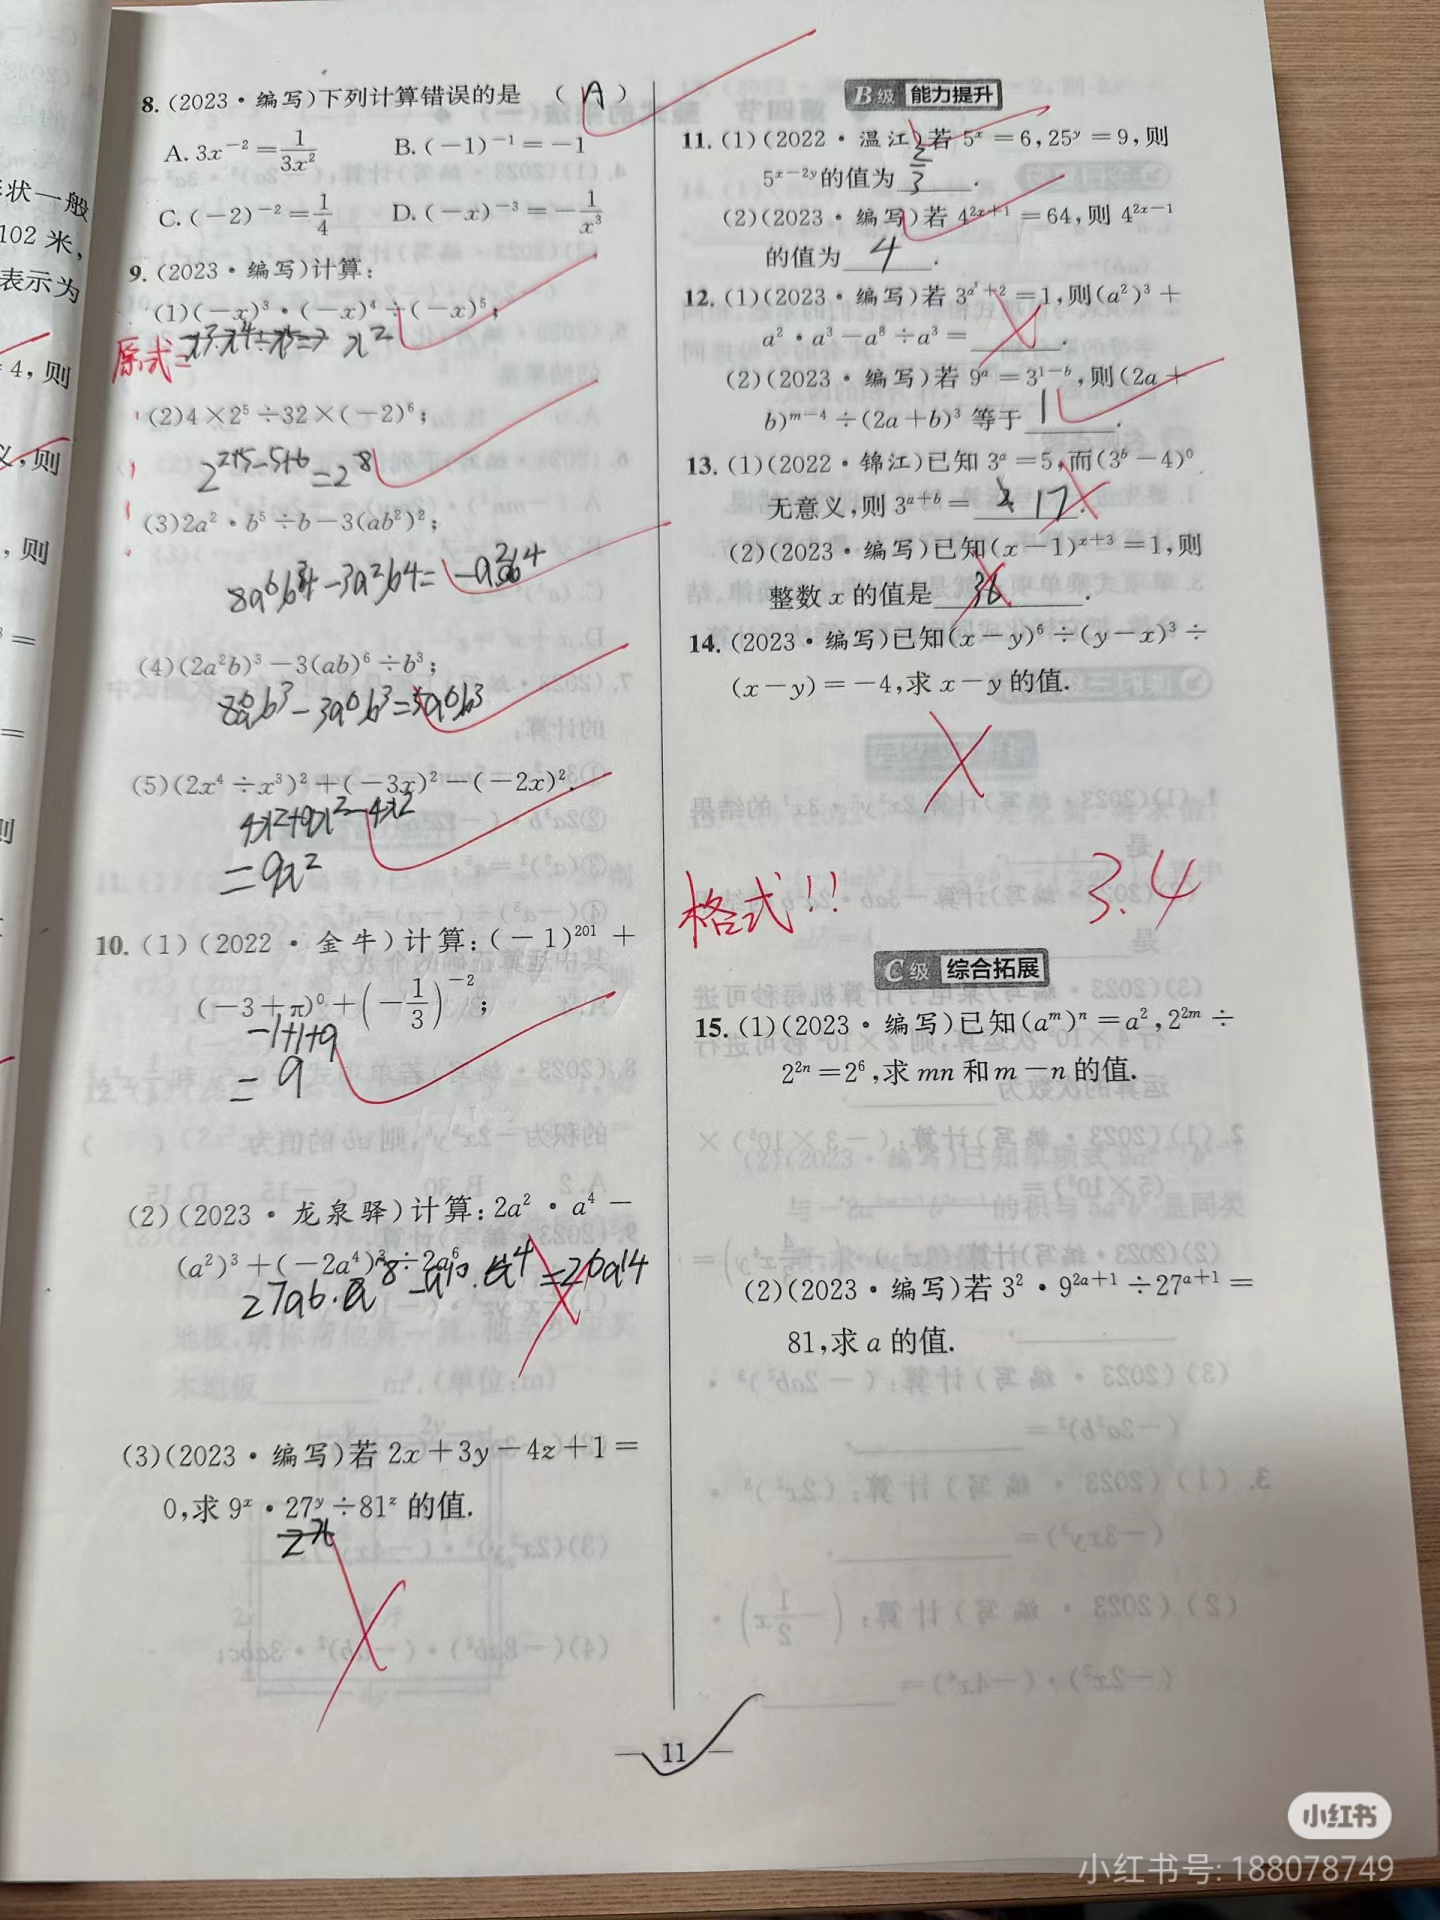 状一般
102 米,
表示为
4, 则
义, 则
, 则
8. (2023·编写)下列计算错误的是 ( A )
A. 3x⁻² = 1/3x² B. (-1)⁻¹ = -1
C. (-2)⁻² = 1/4 D. (-x)⁻³ = -1/x³
9. (2023·编写)计算:
(1)(-x)³·(-x)⁴÷(-x)⁵;
原式= x²
(2)4×2⁵÷32×(-2)⁶;
2²⁺⁵⁻⁵⁺⁶=2⁸
(3)2a²·b⁵÷b-3(ab²)²;
-3a²b4= -a²b4
(4)(2a²b)³-3(ab)⁶÷b³;
8a⁶b³-3a⁶b³=5a⁶b³
(5)(2x⁴÷x³)²+(-3x)²-(-2x)².
4x²+9x²-4x²
=9x²
10. (1)(2022·金牛)计算:(-1)²⁰¹+
(-3+π)⁰+(-1/3)⁻²;
-1+1+9
=9
(2)(2023·龙泉驿)计算:2a²·a⁴-
(a²)³+(-2a⁴)³÷2a⁶.
=26a14
(3)(2023·编写)若 2x+3y-4z+1=
0,求 9ˣ·27ʸ÷81ᶻ 的值.
B级 能力提升
11. (1)(2022·温江)若 5ˣ=6,25ʸ=9,则
5ˣ⁻²ʸ的值为 2/3 .
(2)(2023·编写)若 4²ˣ⁺¹=64,则 4²ˣ⁻¹
的值为 4 .
12. (1)(2023·编写)若 3ᵃ³⁺²=1,则(a²)³+
a²·a³-a⁸÷a³=______.
(2)(2023·编写)若 9ᵃ=3¹⁻ᵇ,则(2a+
b)ᵐ⁻⁴÷(2a+b)³ 等于 1 .
13. (1)(2022·锦江)已知 3ᵃ=5,而(3ᵇ-4)⁰
无意义,则 3ᵃ⁺ᵇ= 17 .
(2)(2023·编写)已知(x-1)ˣ⁺³=1,则
整数 x 的值是 .
14. (2023·编写)已知(x-y)⁶÷(y-x)³÷
(x-y)=-4,求 x-y 的值.
格式!! 3.4
C级 综合拓展
15. (1)(2023·编写)已知(aᵐ)ⁿ=a²,2²ᵐ÷
2²ⁿ=2⁶,求 mn 和 m-n 的值.
(2)(2023·编写)若 3²·9²ᵃ⁺¹÷27ᵃ⁺¹=
81,求 a 的值.
— 11 —
小红书
小红书号: 188078749